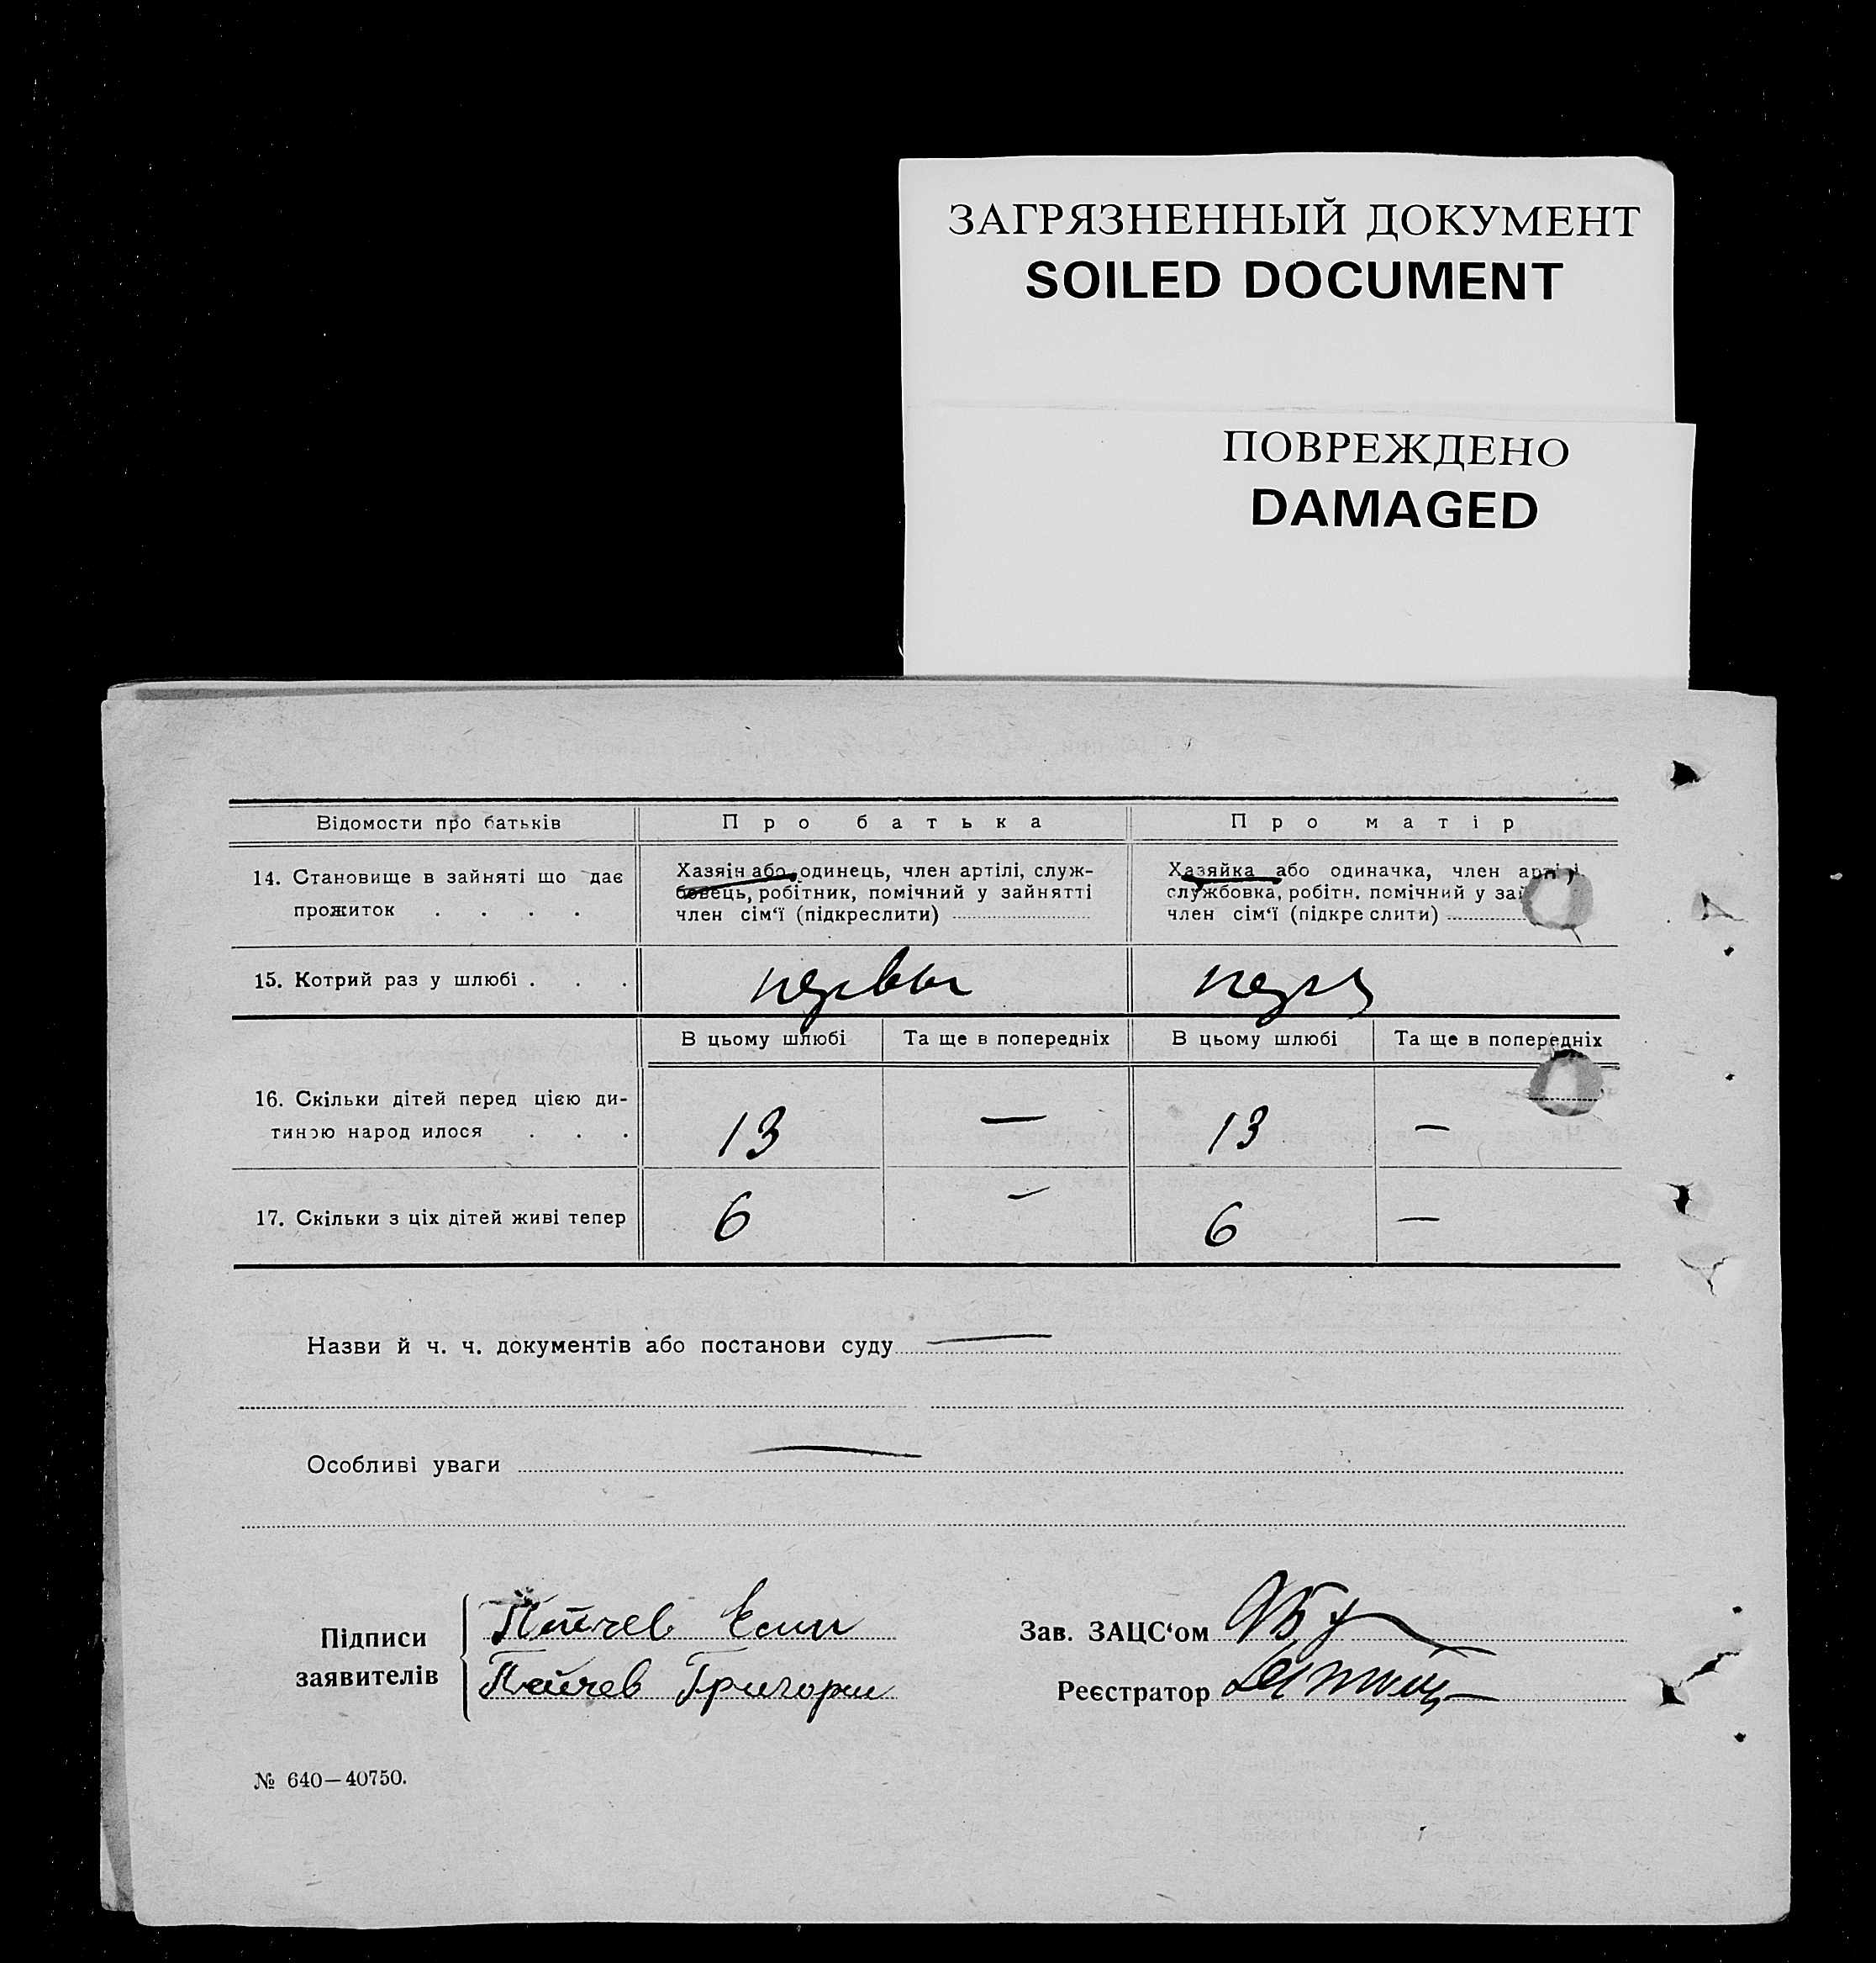 ЗАГРЯЗНЕННЫЙ ДОКУМЕНТ
SOILED DOCUMENT
ПОВРЕЖДЕНО
DAMAGED
Відомости про батьків Про батька Про матір
14. Становище в зайняті що дає прожиток . . . .
Хазяін або одинець, член артілі, служ-
бовець, робітник, помічний у зайнятті
член сім‘ї (підкреслити)
Хазяйка або одиначка, член артілі,
службовка, робітн. помічний у зай
член сім‘ї (підкре слити)
15. Котрий раз у шлюбі . . . первы перв
В цьому шлюбі Та ще в попередніх В цьому шлюбі Та ще в попередніх
16. Скільки дітей перед цією ди-
тиною народ илося . . . 13 — 13 —
17. Скільки з ціх дітей живі тепер 6 — 6 —
Назви й ч. ч. документів або постанови суду —
Особливі уваги —
Підписи
заявителів
Пейчев
Пейчев Григори
Зав. ЗАЦС‘ом
Реєстратор
№ 640—40750.